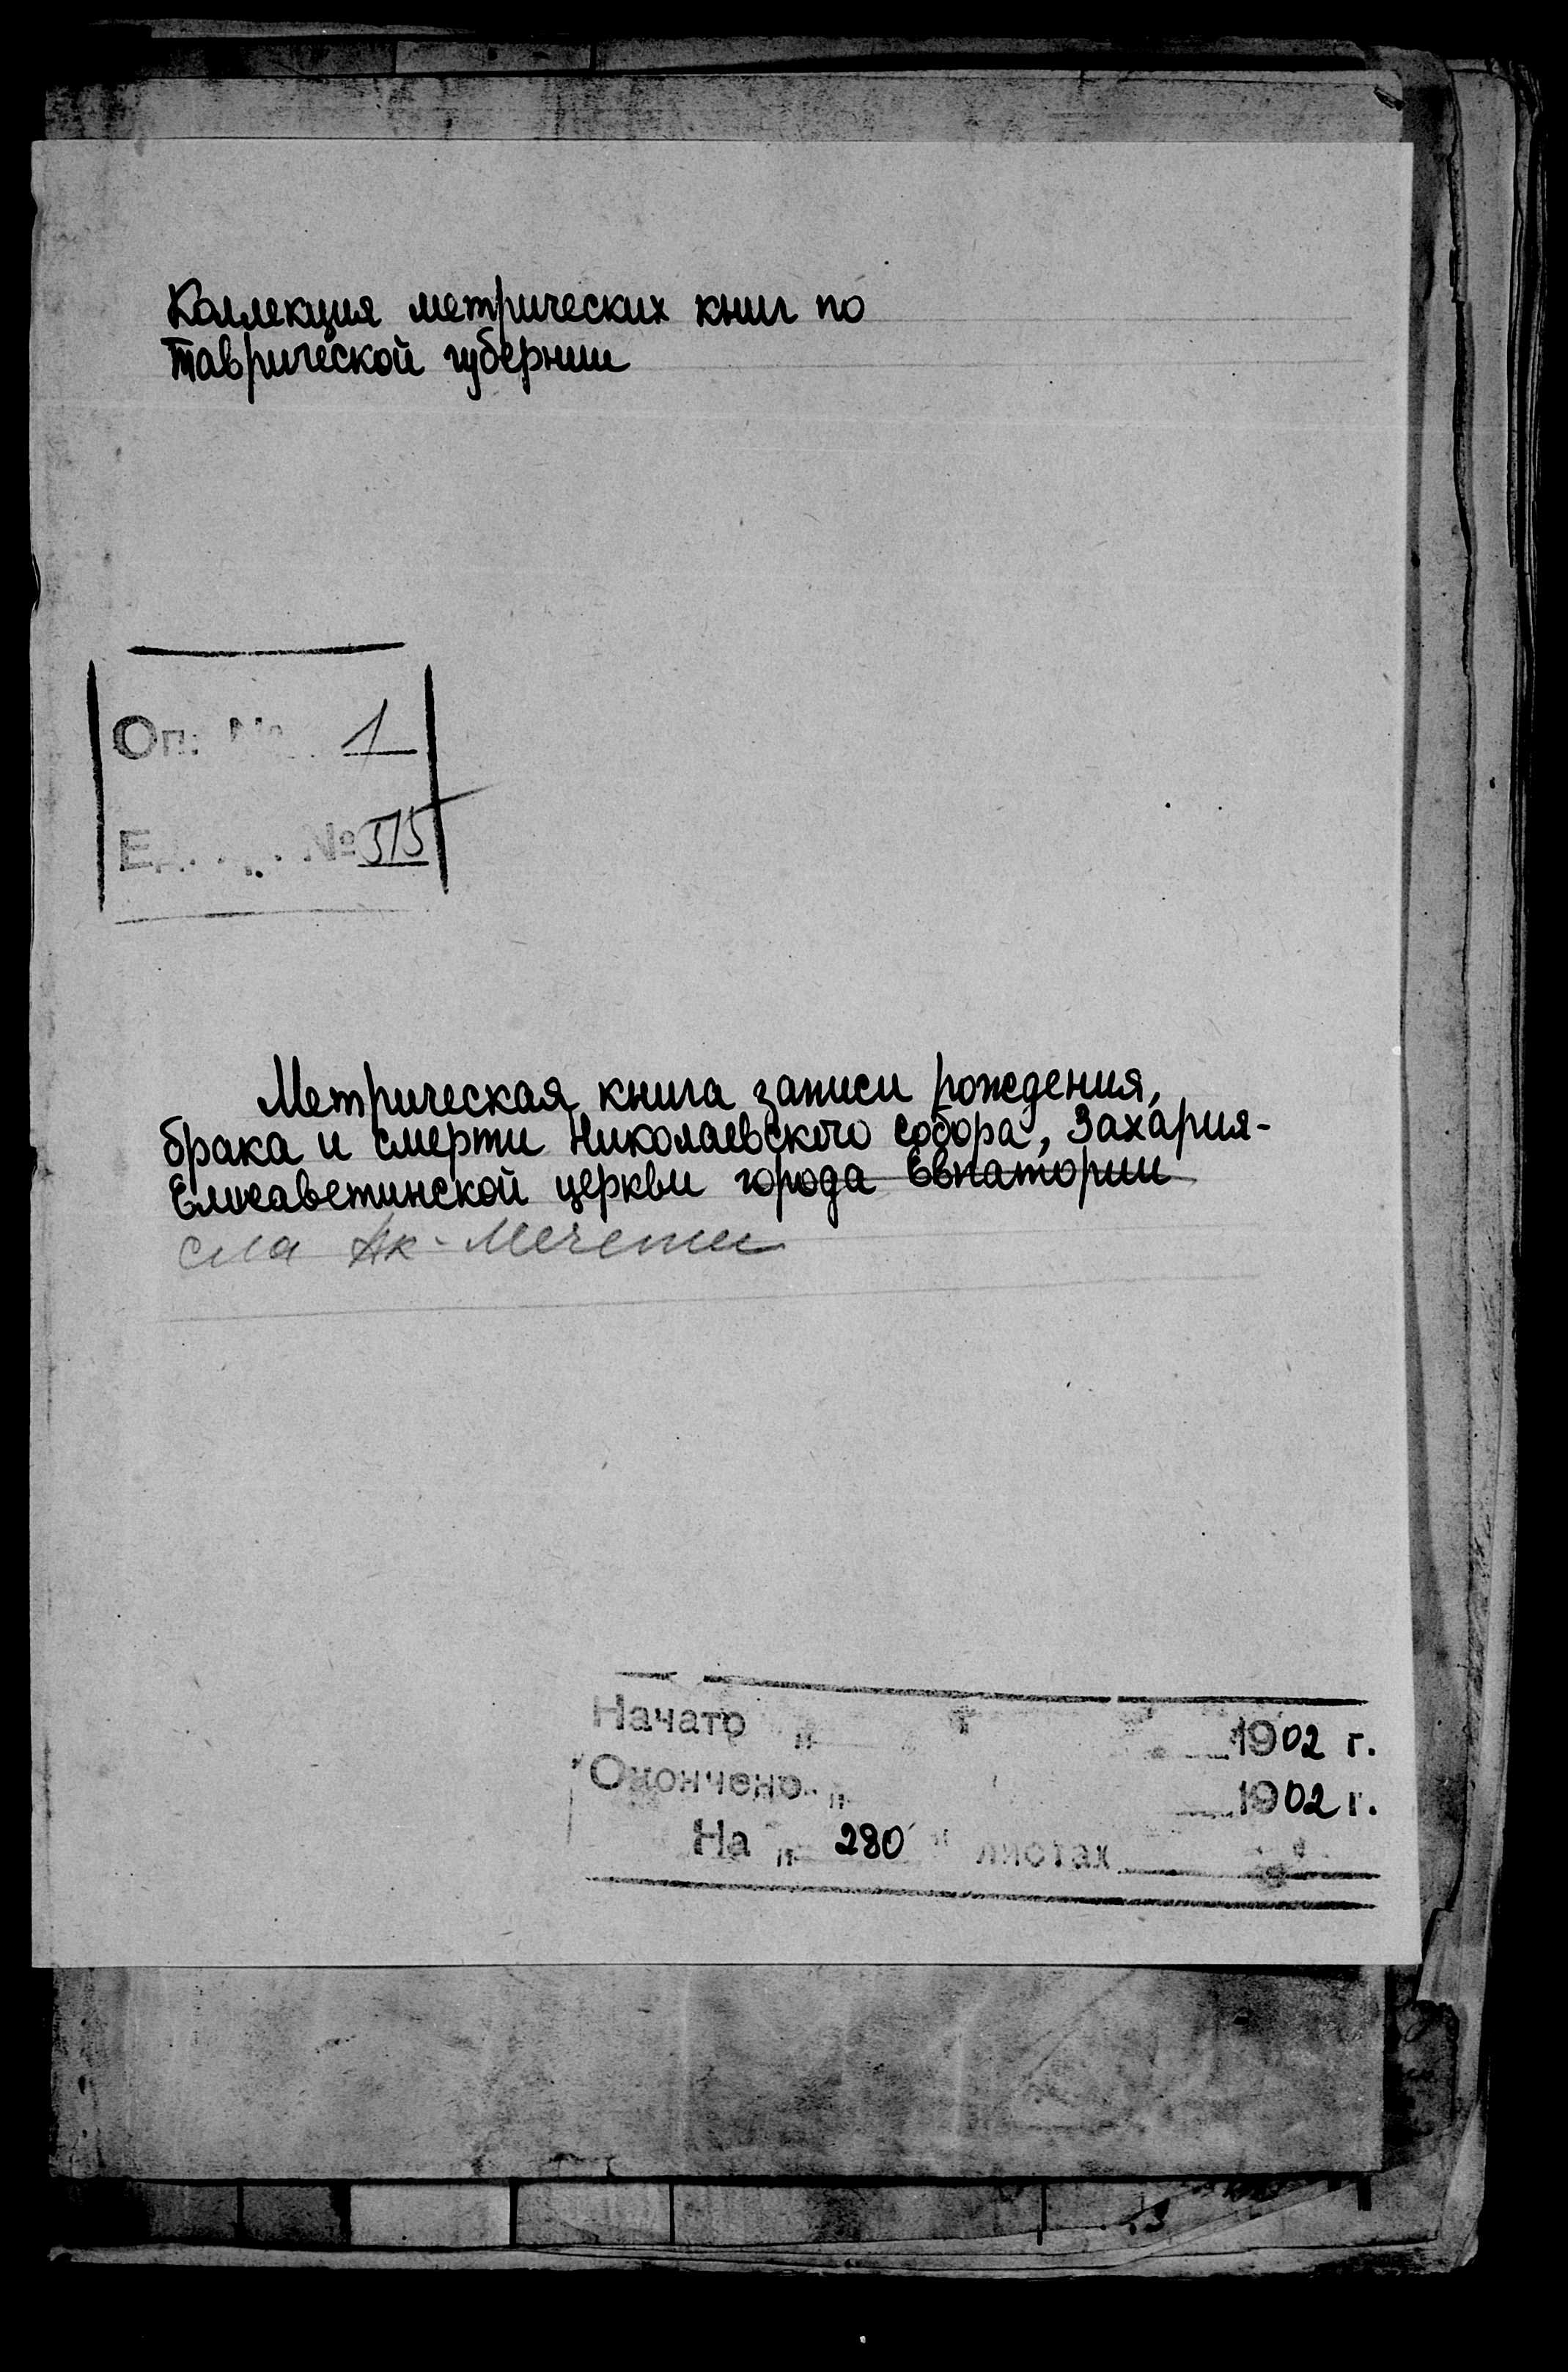 Коллекция метрических книг по
Таврической губернии
Оп. № 1
Ед. хр. № 515
Метрическая книга записи рождения,
брака и смерти Николаевского собора, Захария-
Елисаветинской церкви города Евпатории
села Ак-Мечети
Начато " 1902 г.
Окончено " 1902 г.
На " 280 " листах